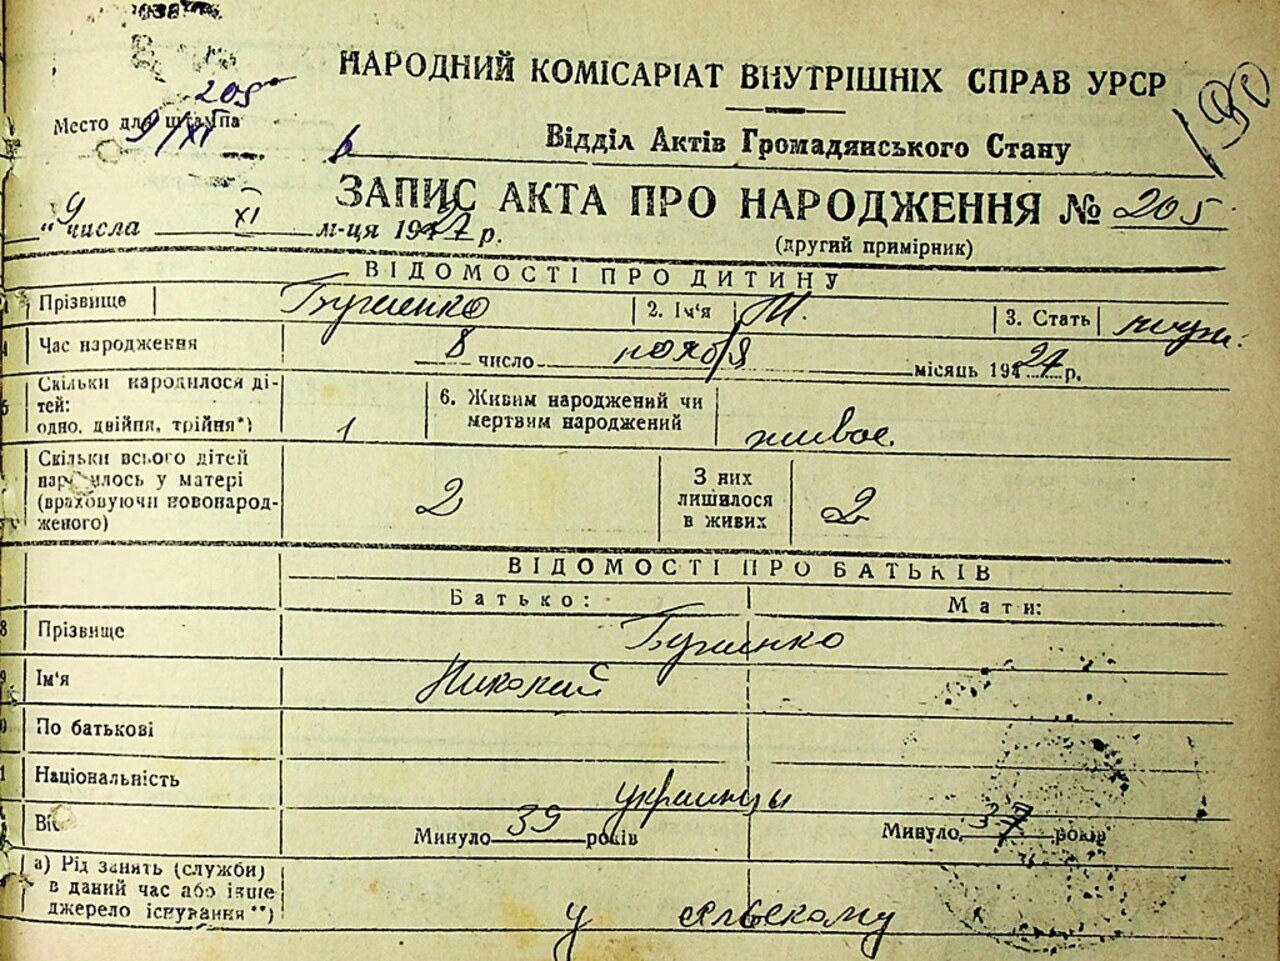 205
НАРОДНИЙ КОМІСАРІАТ ВНУТРІШНІХ СПРАВ УРСР
Место для штампа
9/XI
Відділ Актів Громадянського Стану
ЗАПИС АКТА ПРО НАРОДЖЕННЯ № 205
„ 9 числа XI м-ця 1927 р.
(другий примірник)
ВІДОМОСТІ ПРО ДИТИНУ
Прізвище 2. Ім'я 3. Стать муж.
Час народження 8 число ноября місяць 1927 р.
Скільки народилося дітей:
одно, двійня, трійня*) 1
6. Живим народжений чи мертвим народжений живое.
Скільки всього дітей народилось у матері (враховуючи новонародженого) 2
З них лишилося в живих 2
ВІДОМОСТІ ПРО БАТЬКІВ
Батько: Мати:
8 Прізвище
Ім'я Николай
По батькові
Національність украинцы
Вік Минуло 39 років Минуло 37 років
а) Рід занять (служби)
в даний час або інше
джерело існування**) у